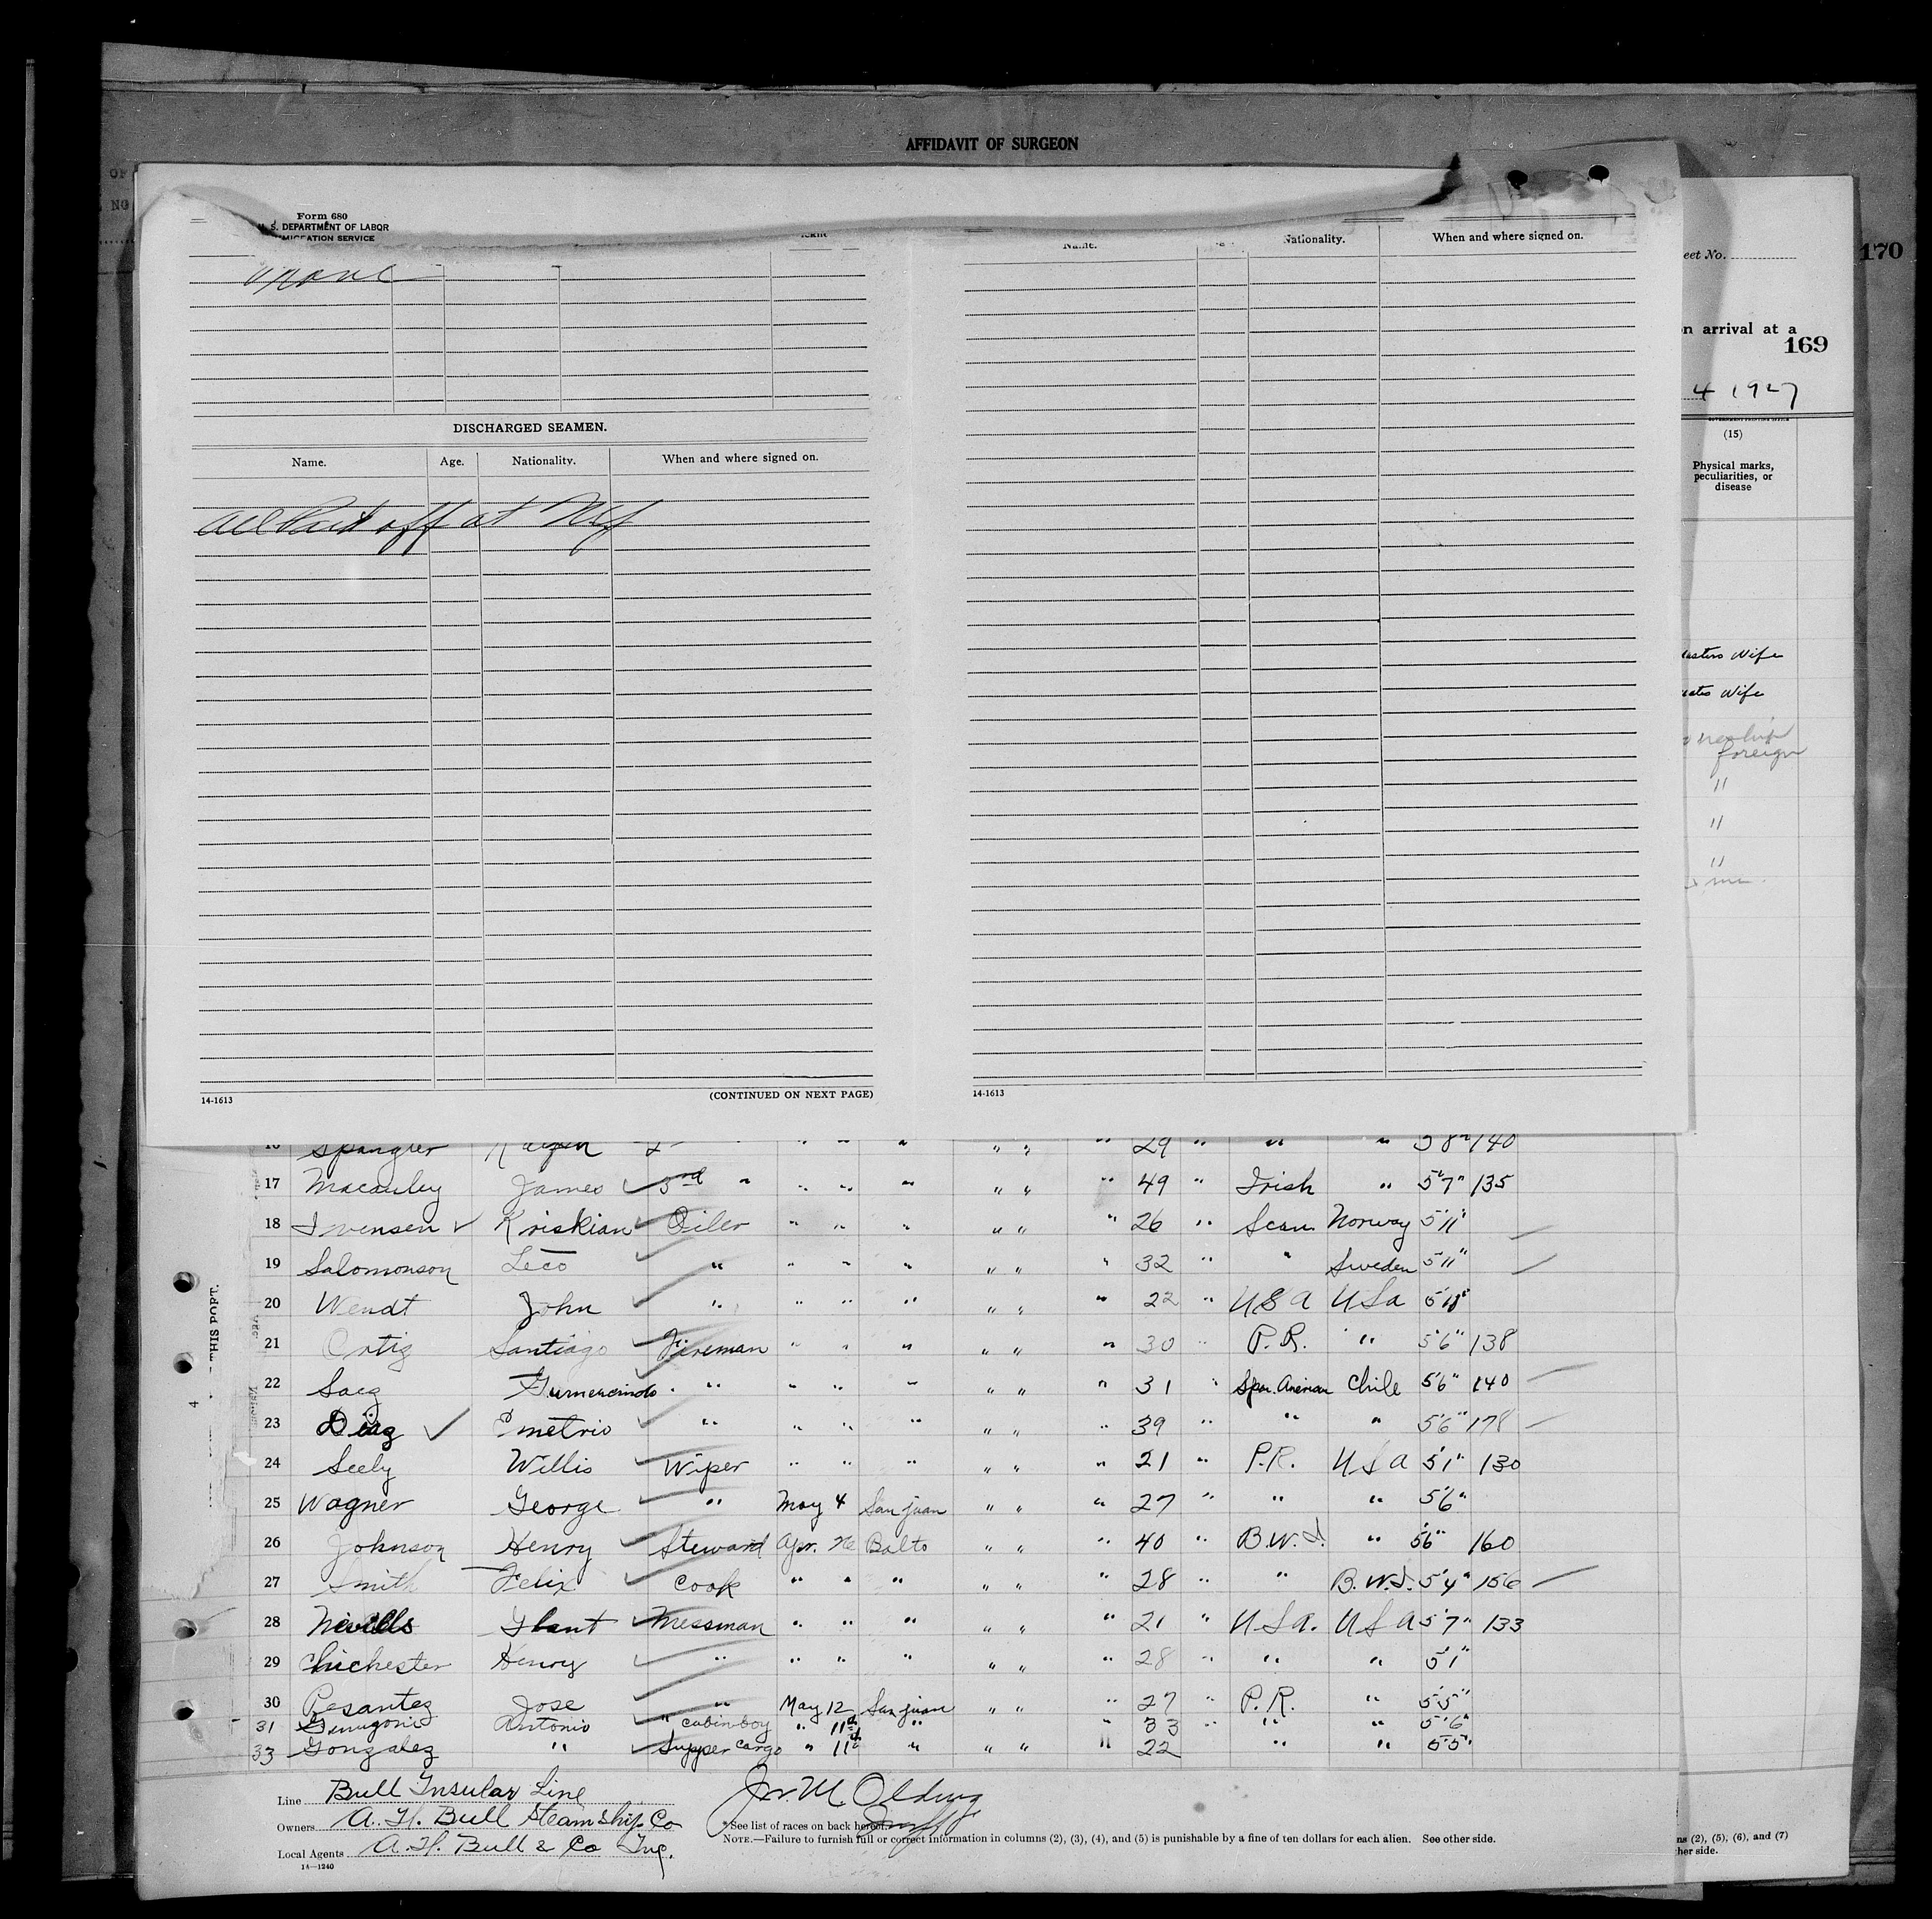 AFFIDAVIT OF SURGEON
Form 680
S. DEPARTMENT OF LABOR
SERVICE
Name. Nationality. When and where signed on.
DISCHARGED SEAMEN.
Name. Age. Nationality. When and where signed on.
All Paid off at
14-1613 (CONTINUED ON NEXT PAGE)
14-1613
170
eet No.
n arrival at a
169
4 1927
(15)
Physical marks,
peculiarities, or
disease
Wife
Wife
foreign
"
"
"
THIS PORT.
4
Spangler " " " " " " 29 " " " 5'8" 140
17 Macauley James 3rd " " " " " " " 49 " Irish " 5'7" 135
18 Ivensen Kriskian Oiler " " " " " " 26 " Scan Norway 5'11"
19 Salomonson Leco " " " " " " " 32 " " Sweden 5'11"
20 Wendt John " " " " " " " 22 " U S A U S A
21 Ortiz Santiago Fireman " " " " " " 30 " P.R. " 5'6" 138
22 Saez Gumercindo " " " " " " " 31 " Span. American Chile 5'6" 140
23 Diaz Emetrio " " " " " " " 39 " " " 5'6" 178
24 Seely Willis Wiper " " " " " " 21 " P.R. U S A 5'1" 130
25 Wagner George " May 4 San juan " " " 27 " " " 5'6"
26 Johnson Henry Steward Apr. 26 Balto " " " 40 " B.W.I. " 5'6" 160
27 Smith Felix Cook " " " " " " 28 " " B.W.I. 5'4" 156
28 Nevills Messman " " " " " " 21 " U S A. U S A 5'7" 133
29 Chichester Henry " " " " " " " 28 " " " 5'1"
30 Pesantez Jose " May 12 San juan " " " 27 " P.R. " 5'5"
31 Antonio " cabin boy " 11th " " 33 " " " 5'6"
33 Gonzalez " Supper cargo " 11th " " " " 22 " " 5'5"
Line Bull Insular Line
Owners A. H. Bull Steamship Co
Local Agents A. H. Bull & Co Inc.
14—1240
*See list of races on back hereof.
NOTE.—Failure to furnish full or correct information in columns (2), (3), (4), and (5) is punishable by a fine of ten dollars for each alien. See other side.
ns (2), (5), (6), and (7)
her side.